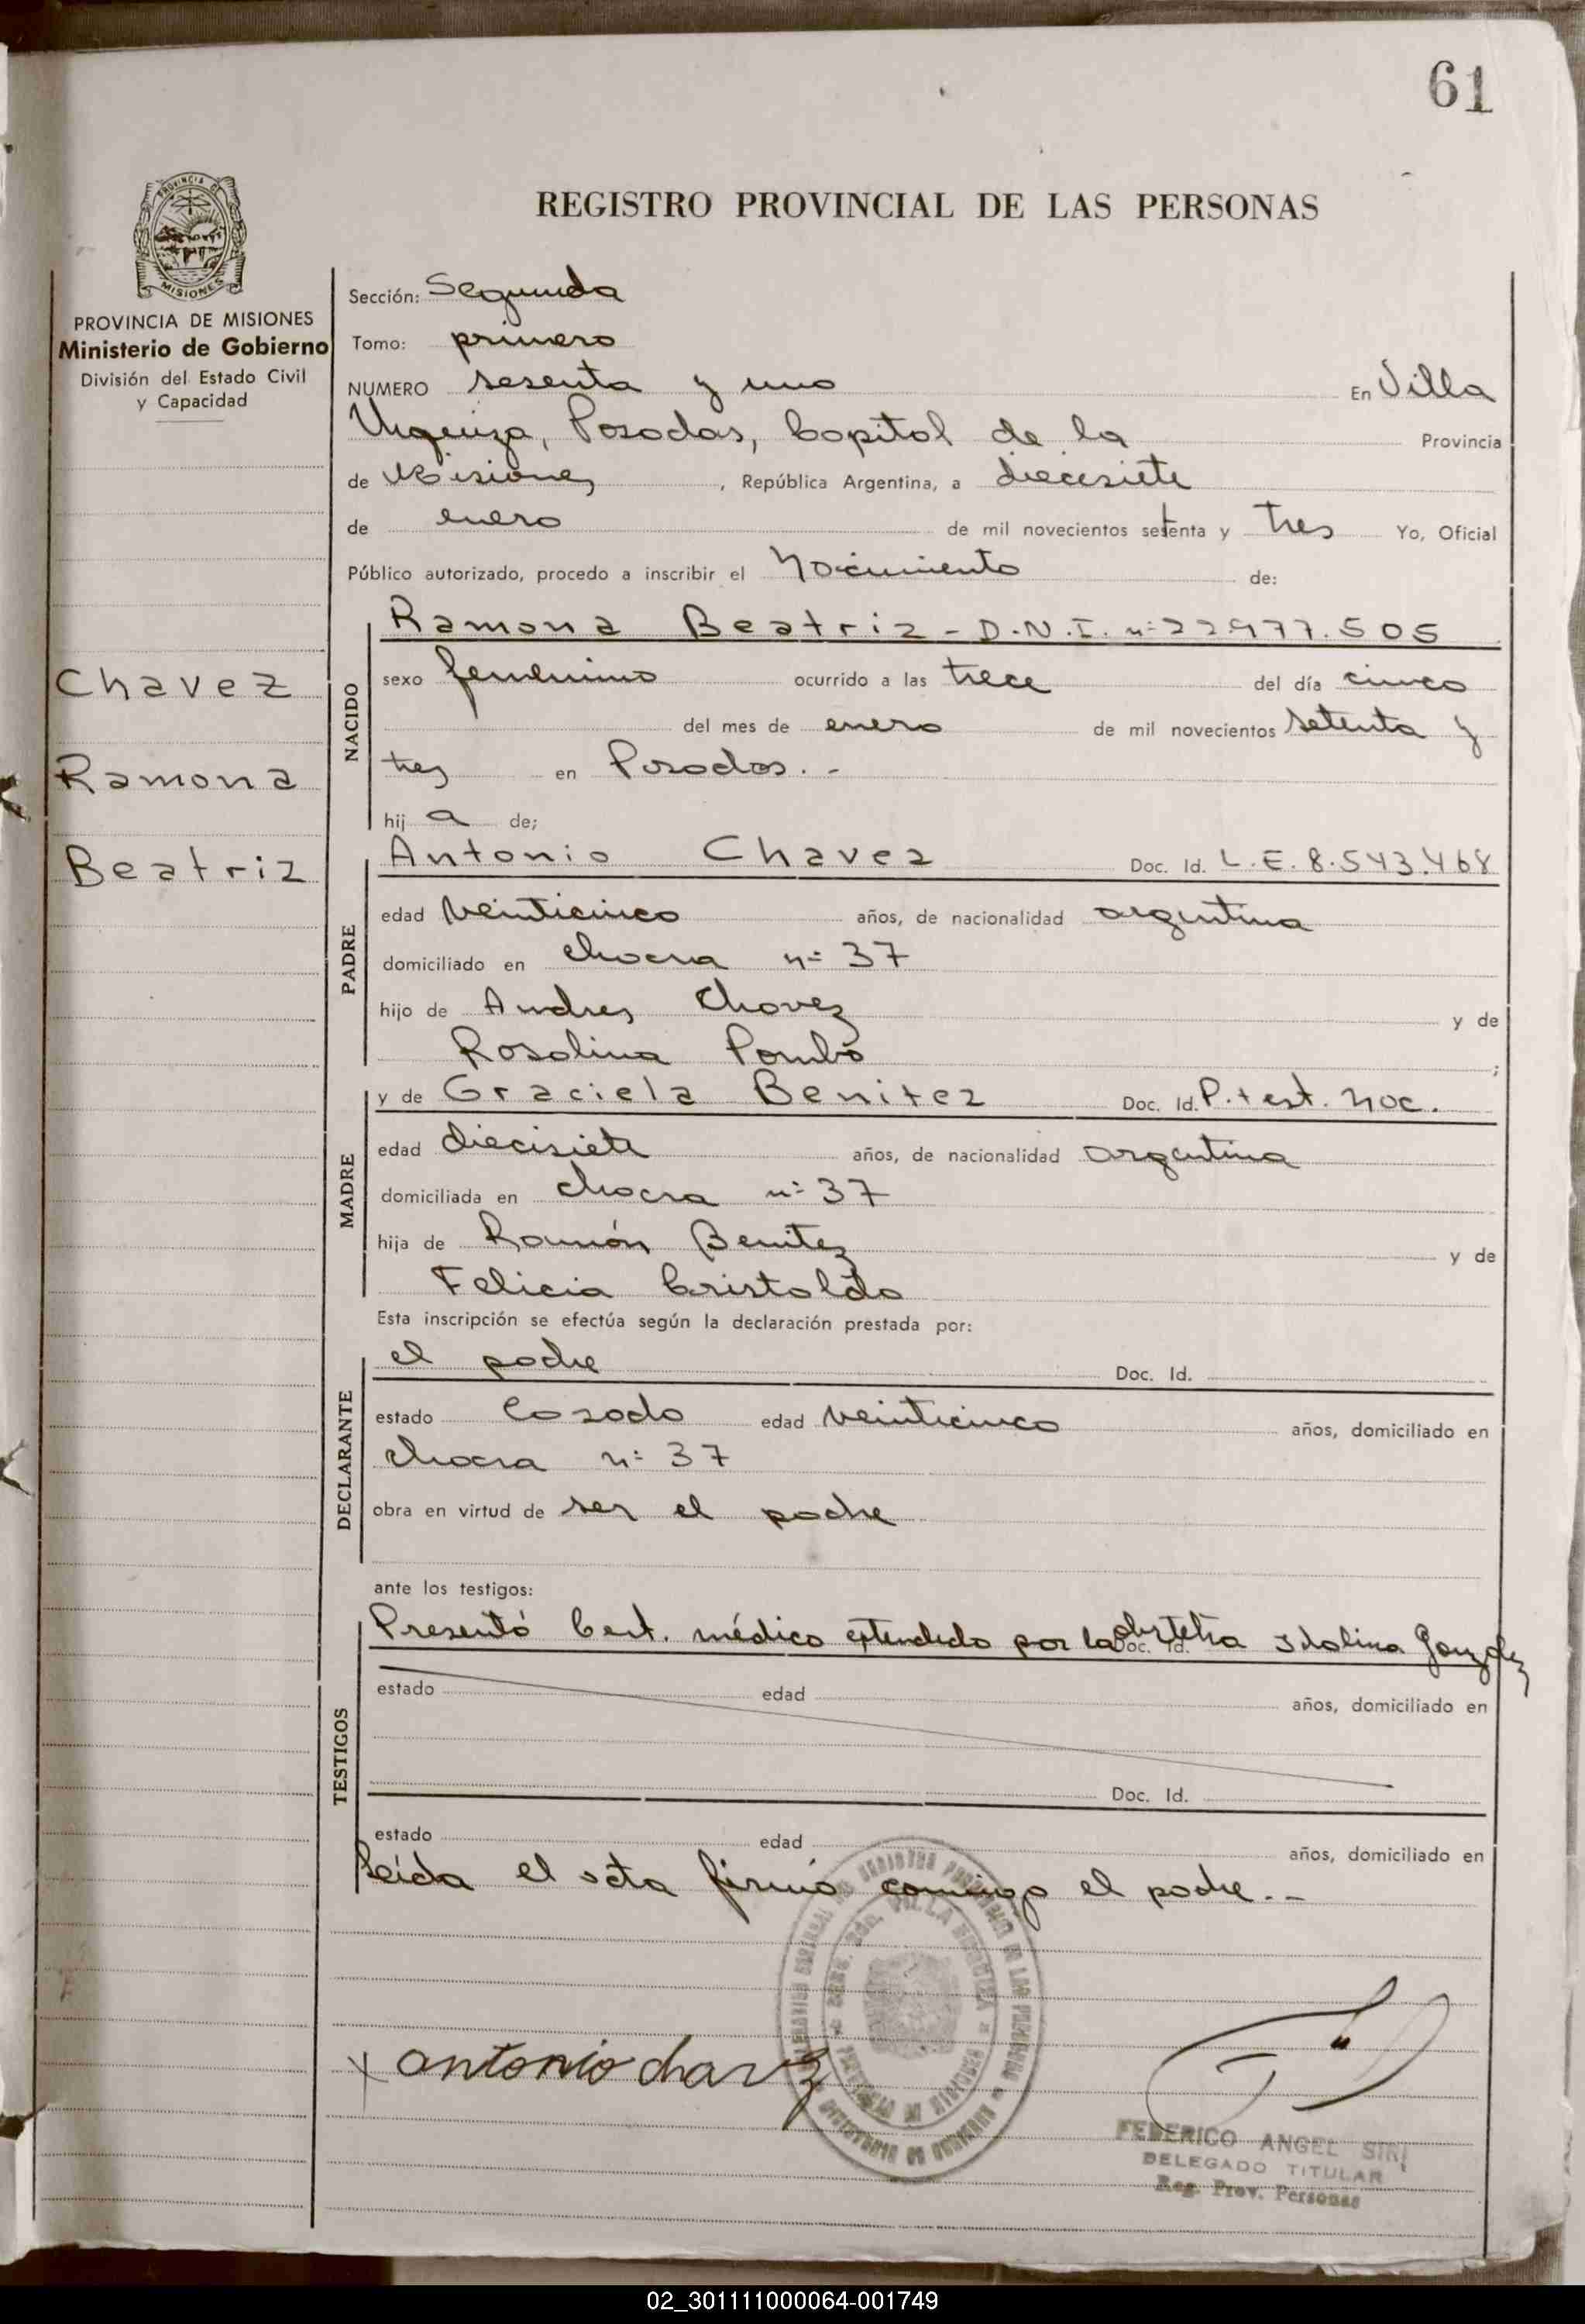 61
REGISTRO PROVINCIAL DE LAS PERSONAS
PROVINCIA DE
MISIONES
PROVINCIA DE MISIONES
Ministerio de Gobierno
División del Estado Civil
y Capacidad
Chavez
Ramona
Beatriz
Sección: Segunda
Tomo: primero
NUMERO sesenta y uno En Villa
Urquiza, Posadas, Capital de la Provincia
de Misiones, República Argentina, a diecisiete
de enero de mil novecientos setenta y tres Yo, Oficial
Público autorizado, procedo a inscribir el Nacimiento de:
NACIDO
Ramona Beatriz - D.N.I. nº 22.977.505
sexo femenino ocurrido a las trece del día cinco
del mes de enero de mil novecientos setenta y
tres en Posadas.-
hij a de;
PADRE
Antonio Chavez Doc. Id. L.E. 8.543.468
edad veinticinco años, de nacionalidad argentina
domiciliado en chacra nº 37
hijo de Andres Chavez y de
Rosalina Pombo ;
MADRE
y de Graciela Benitez Doc. Id. P. test. nac.
edad diecisiete años, de nacionalidad argentina
domiciliada en chacra nº 37
hija de Ramón Benitez y de
Felicia Cristaldo
Esta inscripción se efectúa según la declaración prestada por:
DECLARANTE
el padre Doc. Id.
estado Casado edad veinticinco años, domiciliado en
chacra nº 37
obra en virtud de ser el padre
ante los testigos:
TESTIGOS
Presentó Cert. médico extendido por la obstetra Idalina Gonzalez
Doc. Id.
estado edad años, domiciliado en
Doc. Id.
estado edad años, domiciliado en
Leída el acta firmó conmigo el padre.-
x antonio chavez
FEDERICO ANGEL SIRI
DELEGADO TITULAR
Reg. Prov. Personas
02_301111000064-001749